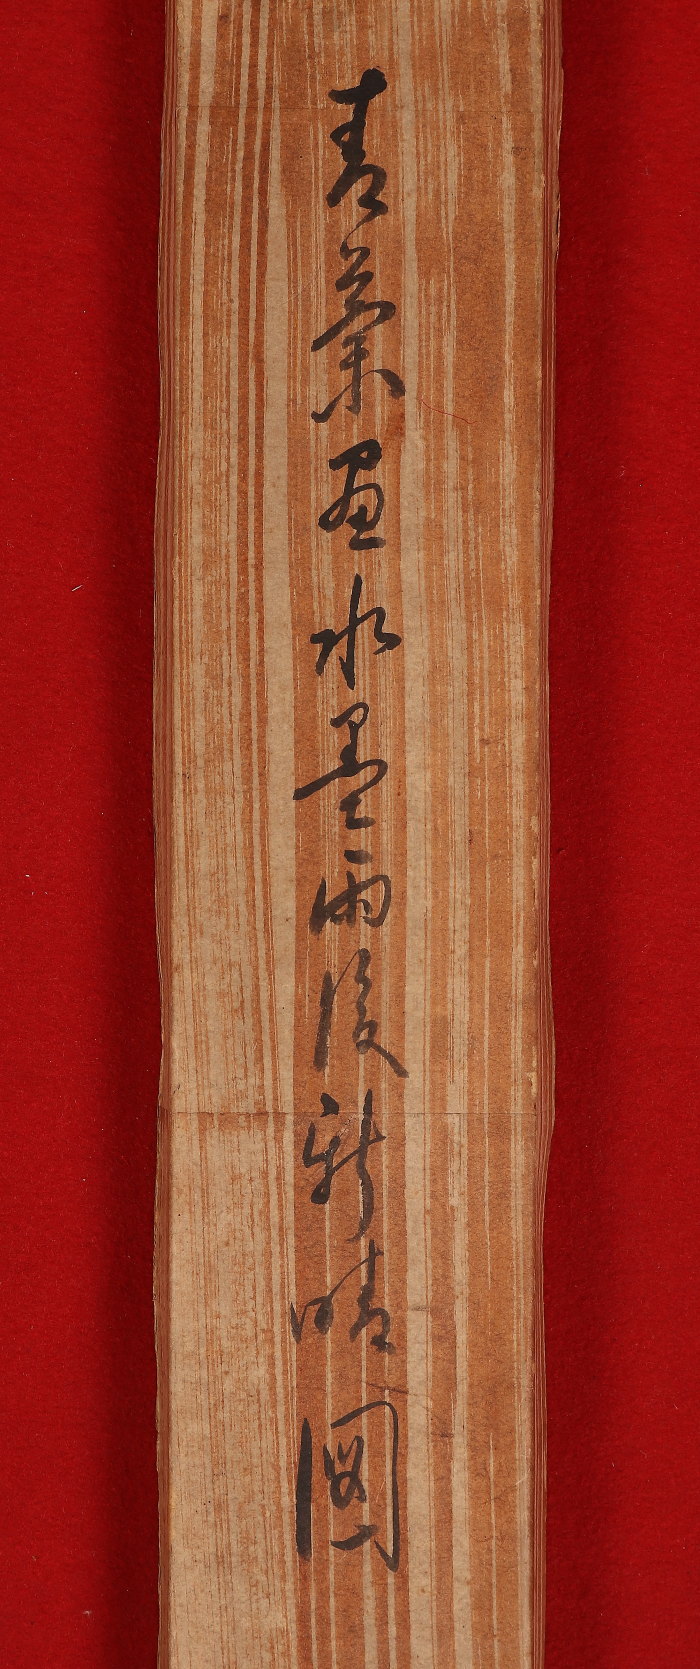 青畫水墨雨後新晴圖